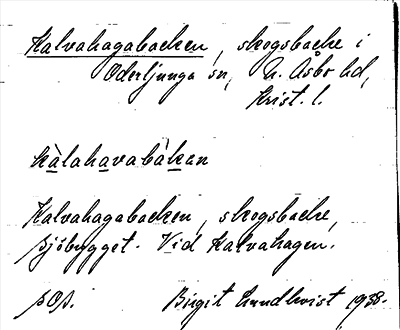 Kalvahagabacken, skogsbacke i
Oderljunga sn, N. Åsbo hd,
Krist. l.
kàlahavabàkan
Kalvahagabacken, skogsbacke,
sjöbygget. Vid Kalvahagen.
Birgit Lundkvist 1938.